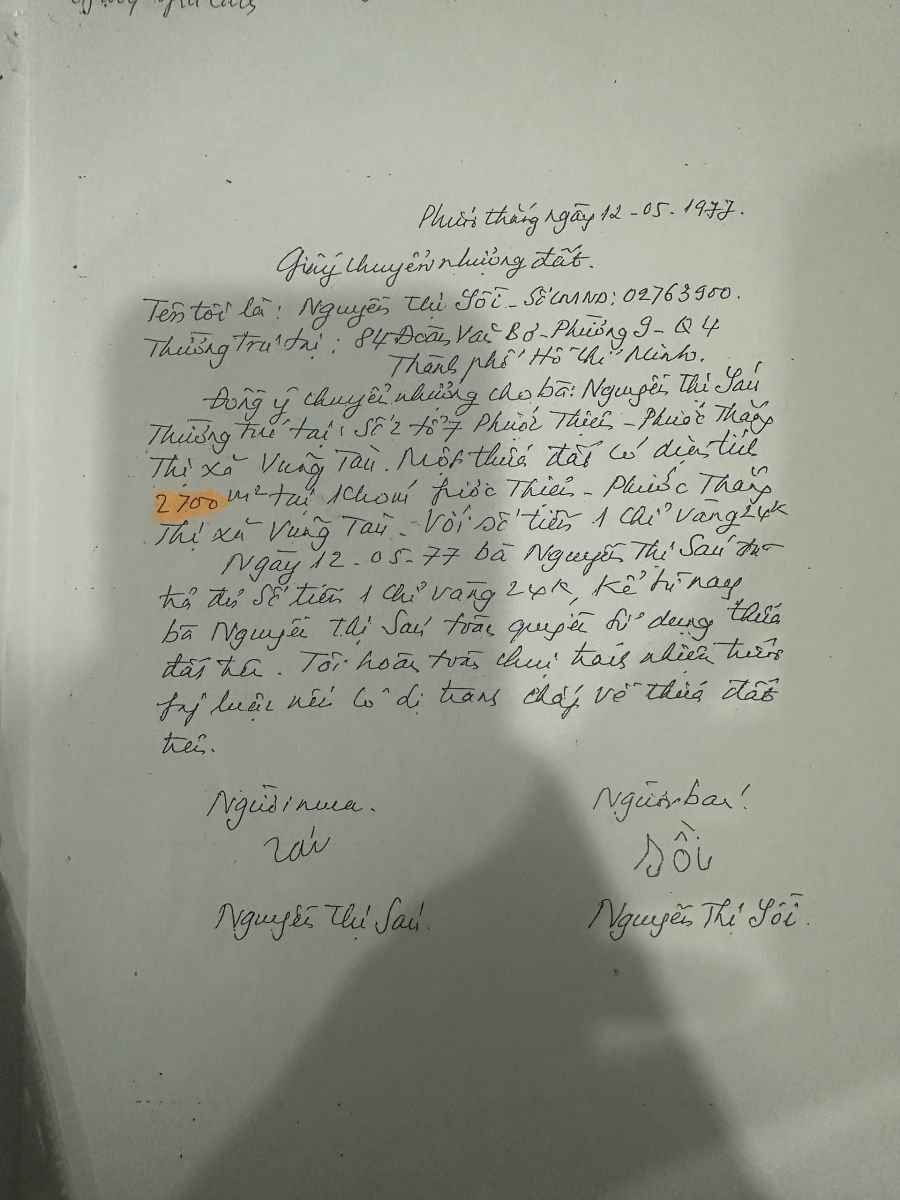 Phước thắng ngày 12-05-1977.
Giấy chuyển nhượng đất.
Tên tôi là: Nguyễn Thị Sồi - Số CMND: 02763900.
Thường trú tại: 84 Đoàn Văn Bơ - Phường 9 - Q 4
Thành phố Hồ Chí Minh.
Đồng ý chuyển nhượng cho bà: Nguyễn Thị Sáu
Thường trú tại: Số 2 tổ 7 Phước Thiện - Phước Thắng
Thị xã Vũng Tàu. Một thửa đất có diện tích
2700 m² tại Phước Thiện - Phước Thắng
Thị xã Vũng Tàu. Với số tiền 1 chỉ vàng 24K
Ngày 12-05-77 bà Nguyễn Thị Sáu đưa
trả đủ số tiền 1 chỉ vàng 24K, kể từ nay
bà Nguyễn Thị Sáu toàn quyền sử dụng thửa
đất trên. Tôi hoàn toàn chịu trách nhiệm trước
luật nếu có tranh chấp về thửa đất
trên.
Người mua. Người bán!
Sáu Sồi
Nguyễn Thị Sáu. Nguyễn Thị Sồi.